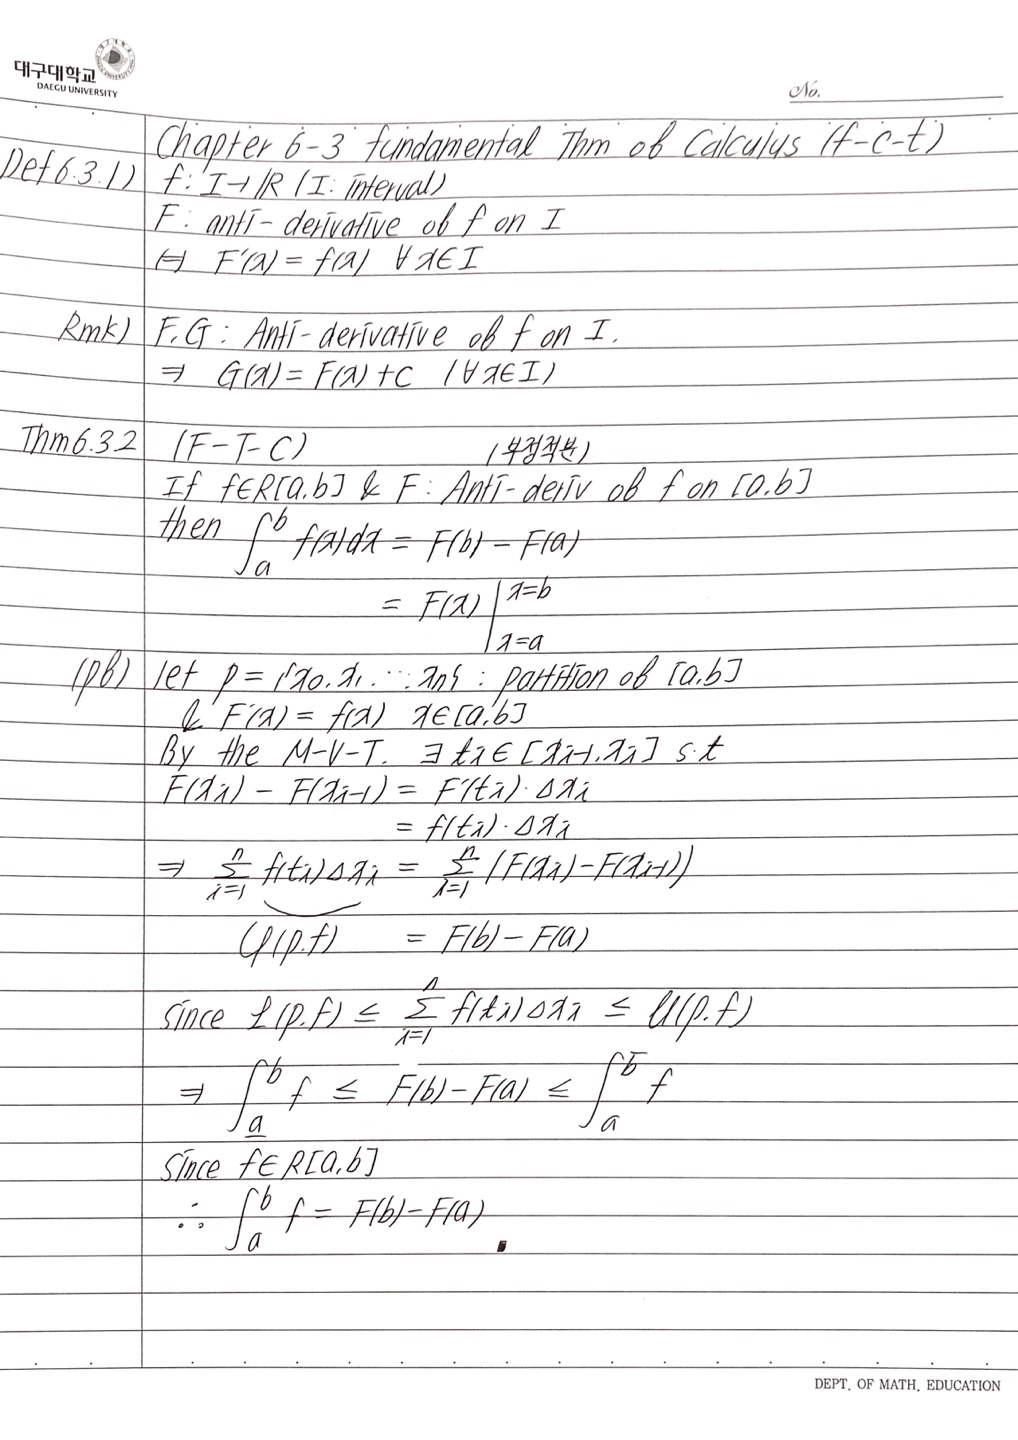 대구대학교
DAEGU UNIVERSITY
No.
Chapter 6-3 fundamental Thm of Calculus (f-c-t)
Def 6.3.1) f: I→ℝ (I: interval)
F: anti-derivative of f on I
⇔ F'(x) = f(x) ∀x∈I
Rmk) F,G: Anti-derivative of f on I.
⇒ G(x) = F(x)+C (∀x∈I)
Thm 6.3.2 (F-T-C) (부정적분)
If f∈R[a,b] & F: Anti-deriv of f on [a,b]
then ∫_a^b f(x)dx = F(b) - F(a)
= F(x) |_{x=a}^{x=b}
(pf) let p = {x0, x1, ... xn} : partition of [a,b]
& F'(x) = f(x) x∈[a,b]
By the M-V-T. ∃ti∈[xi-1, xi] s.t
F(xi) - F(xi-1) = F'(ti)·Δxi
= f(ti)·Δxi
⇒ Σ_{i=1}^n f(ti)Δxi = Σ_{i=1}^n (F(xi)-F(xi-1))
φ(p.f) = F(b)-F(a)
since L(p.f) ≤ Σ_{i=1}^n f(ti)Δxi ≤ U(p.f)
⇒ ∫_a̲^b f ≤ F(b)-F(a) ≤ ∫_a^b̅ f
since f∈R[a,b]
∴ ∫_a^b f = F(b)-F(a)
DEPT. OF MATH. EDUCATION